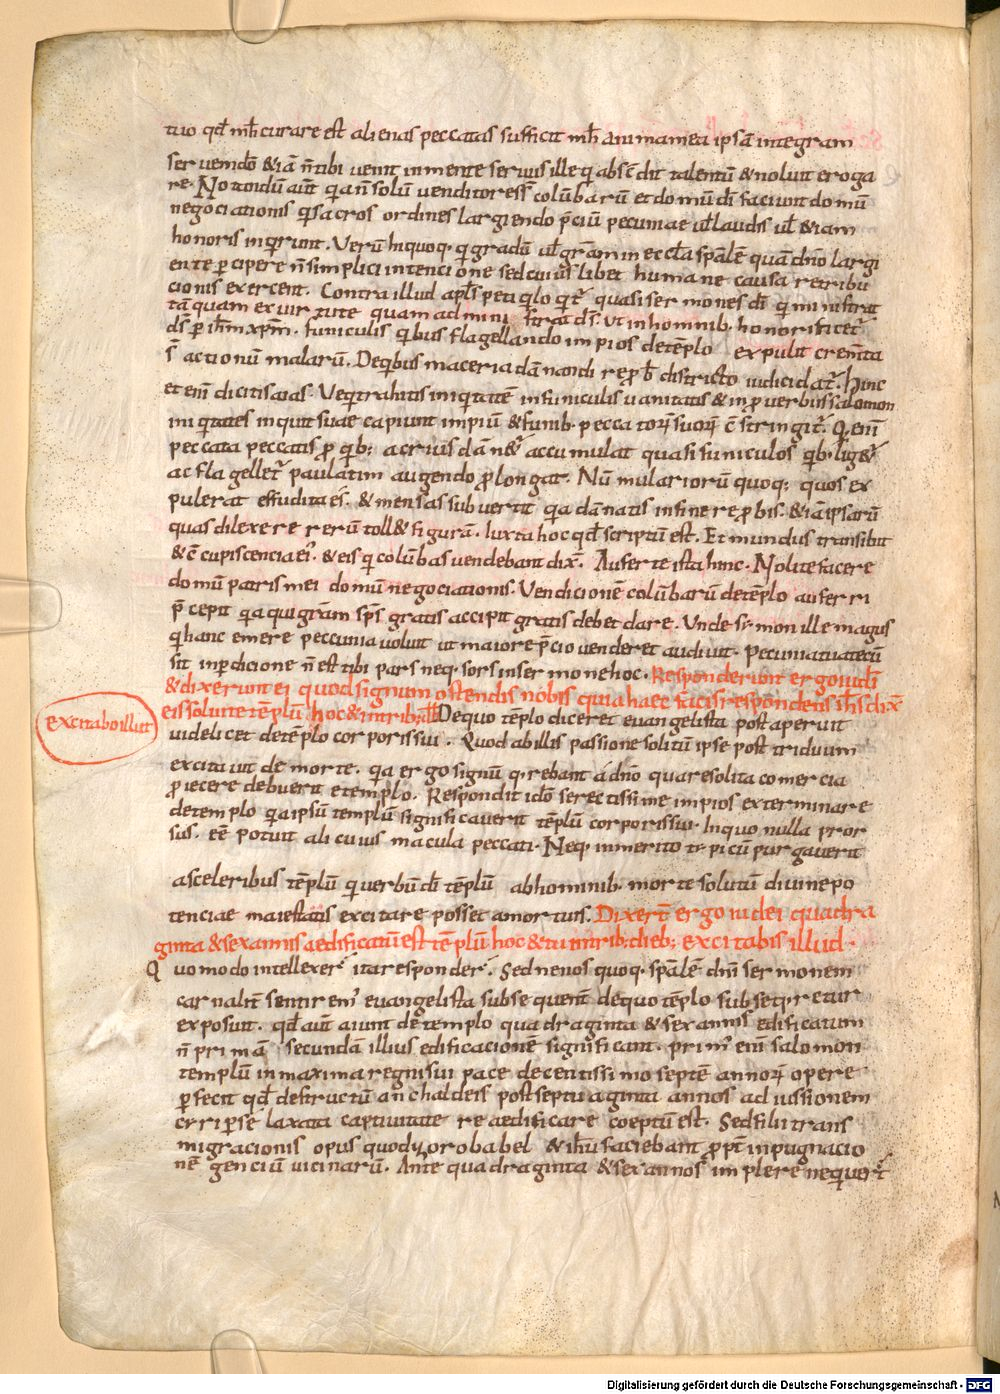 tuo qđ mħ curare est alienas peccatas sufficit mħ animamea ipsā integram
servendō &iā n̄ tibi venit inmente servus ille q̄ abscōdit talentū & noluit eroga
re. Notandū aūt q̄a n̄ solū venditores s̄ colūbarū et domū dī faciunt domū
negociationis q̄ sacros ordines largiendo p̄ciū pecuniae uł laudis uł &iam
honoris inq̄runt. Verū hi quoq. q gradū uł grām in eccła sp̄alē quā dn̄o largi
ente p̄cipere n̄ simplici intencione sed cuius libet humane causa retribu
cionis exercent. Contra illud apłs petri q̄lo q̄t̄ quasi sermones dī q̄ ministrat
tāquam ex virtute quam administrat dš. Ut in hominib. honorificet̄
dš p ih̄m xp̄m. funiculis q̄bus flagellando impios detēplo expulit crem̄ta
s̄ actionū malarū. Deq̄bus maceria dānandi reprob̄ districto iudici dat̄. Hinc
et enī dicit isaias. Ve q̄ trahitis iniq̄tatē in funiculis vanitatis & in proverbiis salomon
iniq̄tates inquit suae capiunt impiū & funib. peccatorū suorū c̄stringit̄. Q̄ enī
peccata peccatis p̄ q̄b; acrius dān&̄ accumulat quasi funiculos q̄b. lig&̄
ac flagellet̄ paulatim augendo p̄longat. Nūmulariorū quoq; quos ex
pulerat effudit aes. & mensas subvertit q̄a dānatis infine rep̄bis. &iā ipsarū
quas dilexere rerū toll& figurā. Iuxta hoc qđ scriptū est. Et mundus transibit
& c̄cupiscencia ei'. & eis q̄ colūbas vendebant dix̄. Auferte ista hinc. Nolite facere
domū patris mei domū negociationis. Vendicionē colūbarū detēplo auferri
p̄cepit q̄a qui grām sp̄s gratis accipit gratis debet dare. Unde symon ille magus
q̄ hanc emere peccunia voluit ut maiore p̄cio venderet audivit. Pecunia tua tecū
sit in p̄dicione n̄ est tibi pars neq. sors in sermone hoc. Responderunt ergo iudī
& dixerunt ei quod signum ostendis nobis quia haec facis respondens ih̄s dix̄
eis solvite tēplū hoc & intrib; Dequo tēplo diceret evangelista post aperuit
excitabo illut
videlicet detēplo corporis sui. Quod ab illis passione solitū ipse post triduum
excitavit de morte. q̄a ergo signū q̄rebant á dn̄o quare solita comercia
p̄iecere debuerit etemplo. Respondit idō se rectissime impios exterminare
detemplo q̄a ipsū templū significaverit tēplū corporis sui. In quo nulla pror
sus. eē potuit alicuius macula peccati. Neq. inmerito typicū purgaverit
asceleribus tēplū q̄ verbū dī tēplū abhominib. morte solutū divine po
tenciae maiestatis excitare posset amortuis. Dixerū ergo iudei quadra
ginta & sex annis aedificatū est tēplū hoc & tu intrib; dieb; excitabis illud.
Quomodo intellexer̄ ita responder̄. Sed ne nos quoq. sp̄alē dn̄i sermonem
carnalit̄ sentirem' evangelista subsequent̄ dequo tēplo subseq̄retur
exposuit. qđ aūt aiunt dē templo quadraginta & sex annis edificatum
n̄ primā secundā illius edificacionē significant. prim' enī salomon
templū in maxima regni sui pace decentissimo septē annorū opere
pfecit qđ destructū a chaldeis post septuaginta annos ad iussionem
cyri perse laxata captivitate reaedificare coeptū est. Sed filii trans
migracionis opus quod zorobabel & ihū faciebant prop̄t inpugnacio
nē genciū vicinarū. Ante quadraginta & sex annos implere nequer̄t
Digitalisierung gefördert durch die Deutsche Forschungsgemeinschaft - DFG